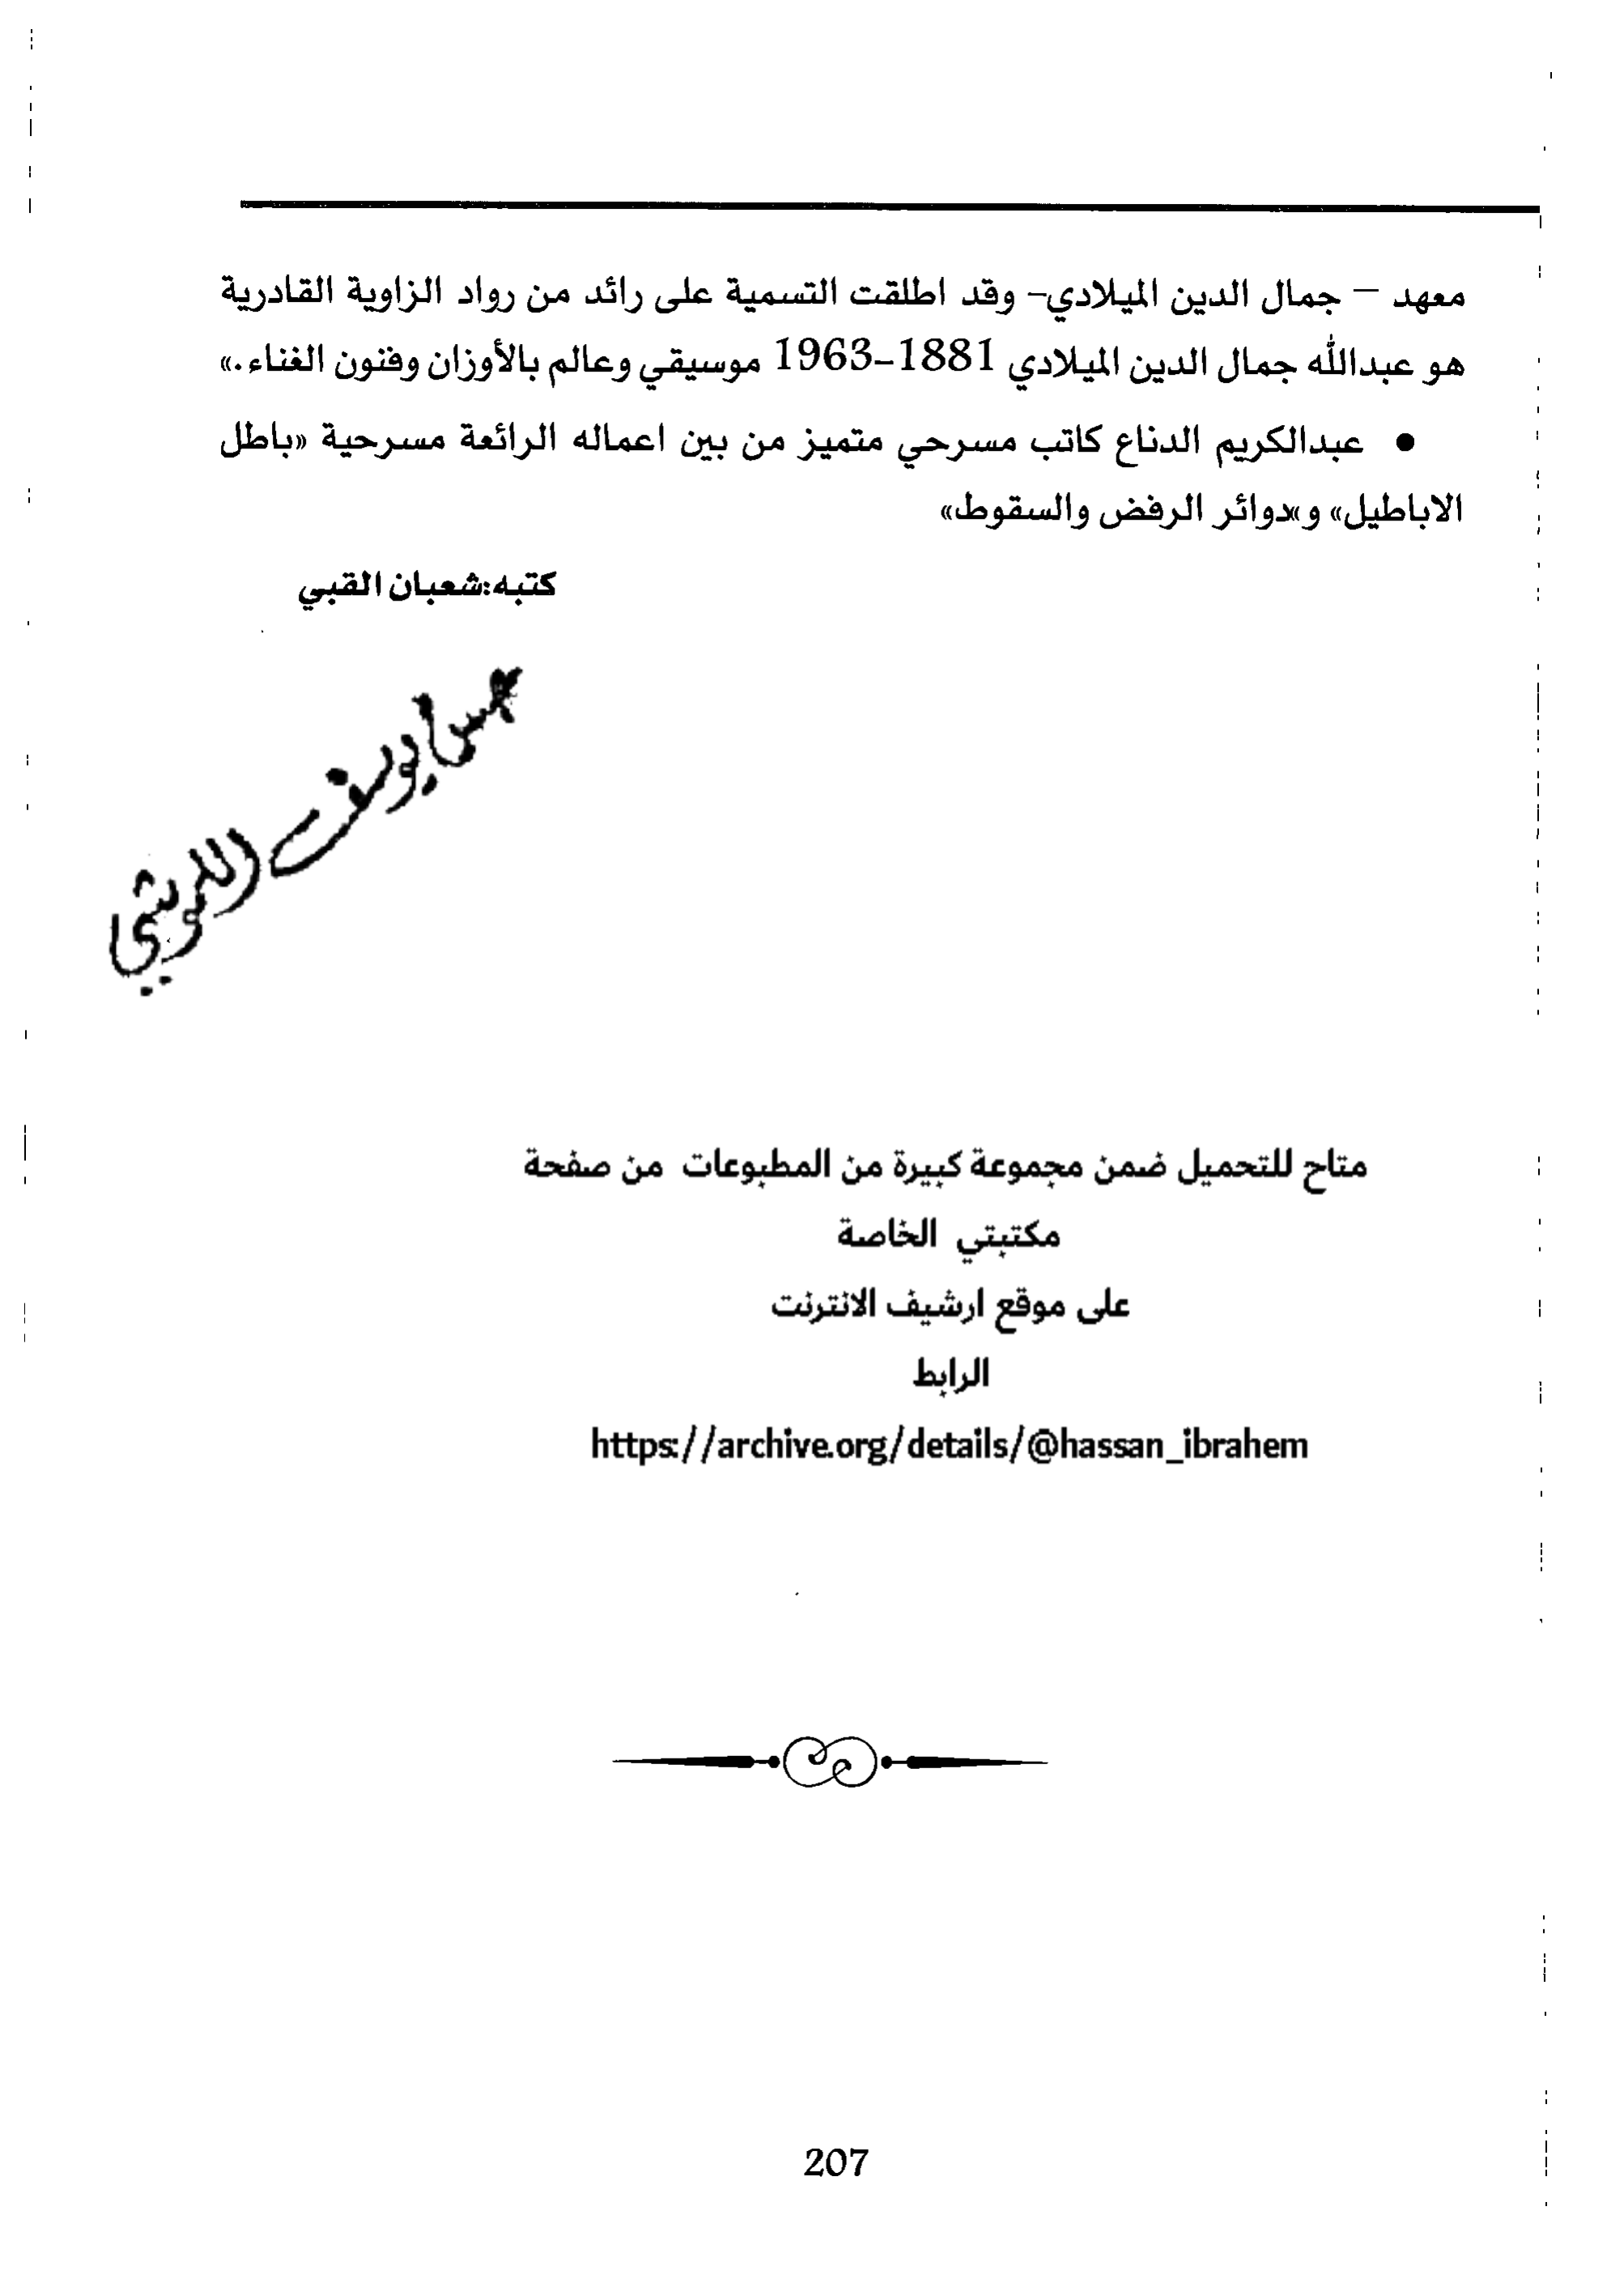 معهد – جمال الدين الميلادي- وقد اطلقت التسمية على رائد من رواد الزاوية القادرية
هو عبدالله جمال الدين الميلادي 1881-1963 موسيقي وعالم بالأوزان وفنون الغناء.»
● عبدالكريم الدناع كاتب مسرحي متميز من بين اعماله الرائعة مسرحية «باطل
الاباطيل» و»دوائر الرفض والسقوط»
كتبه:شعبان القبي
يوسف
متاح للتحميل ضمن مجموعة كبيرة من المطبوعات من صفحة
مكتبتي الخاصة
على موقع ارشيف الانترنت
الرابط
https://archive.org/details/@hassan_ibrahem
207